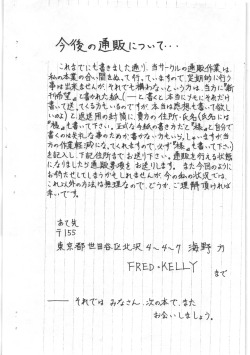 今後の通販について・・・
これまでにも書きました通り、当サークルの通販作業は、
私の本業の合い間をぬって行っていますので、定期的に行う
事は出来ませんが、それでも構わないという方は、当方に「新
刊希望」と書かれた紙(ーと書くと本当にソレだけ
書いて送ってくる方もいるのですが、本当は感想も書いて欲し
いのよ)と返送用の封筒に、貴方の住所・氏名(氏名には
"様"も書いて下さい。正式な手紙の書き方だと"様"と自分で
書くのはそれなりの事のためで書かない方もいらっしゃいますが当
方の作業軽減になってくれますので、必ず"様"も書いて下さい)
を記入し、下記住所までお送り下さい。通販を行える状態
になりましたら通販要項をお送りします。また今回のように
お待たせしてしまうかもしれませんが、今の私の状況では、
これ以外の方法は無理なので、どうか、ご理解頂ければ
幸いです。
あて先
〒155
東京都世田谷区北沢4~4~7 海野 力
FRED・KELLY まで
――それでは みなさん、次の本で、また
お会いしましょう。